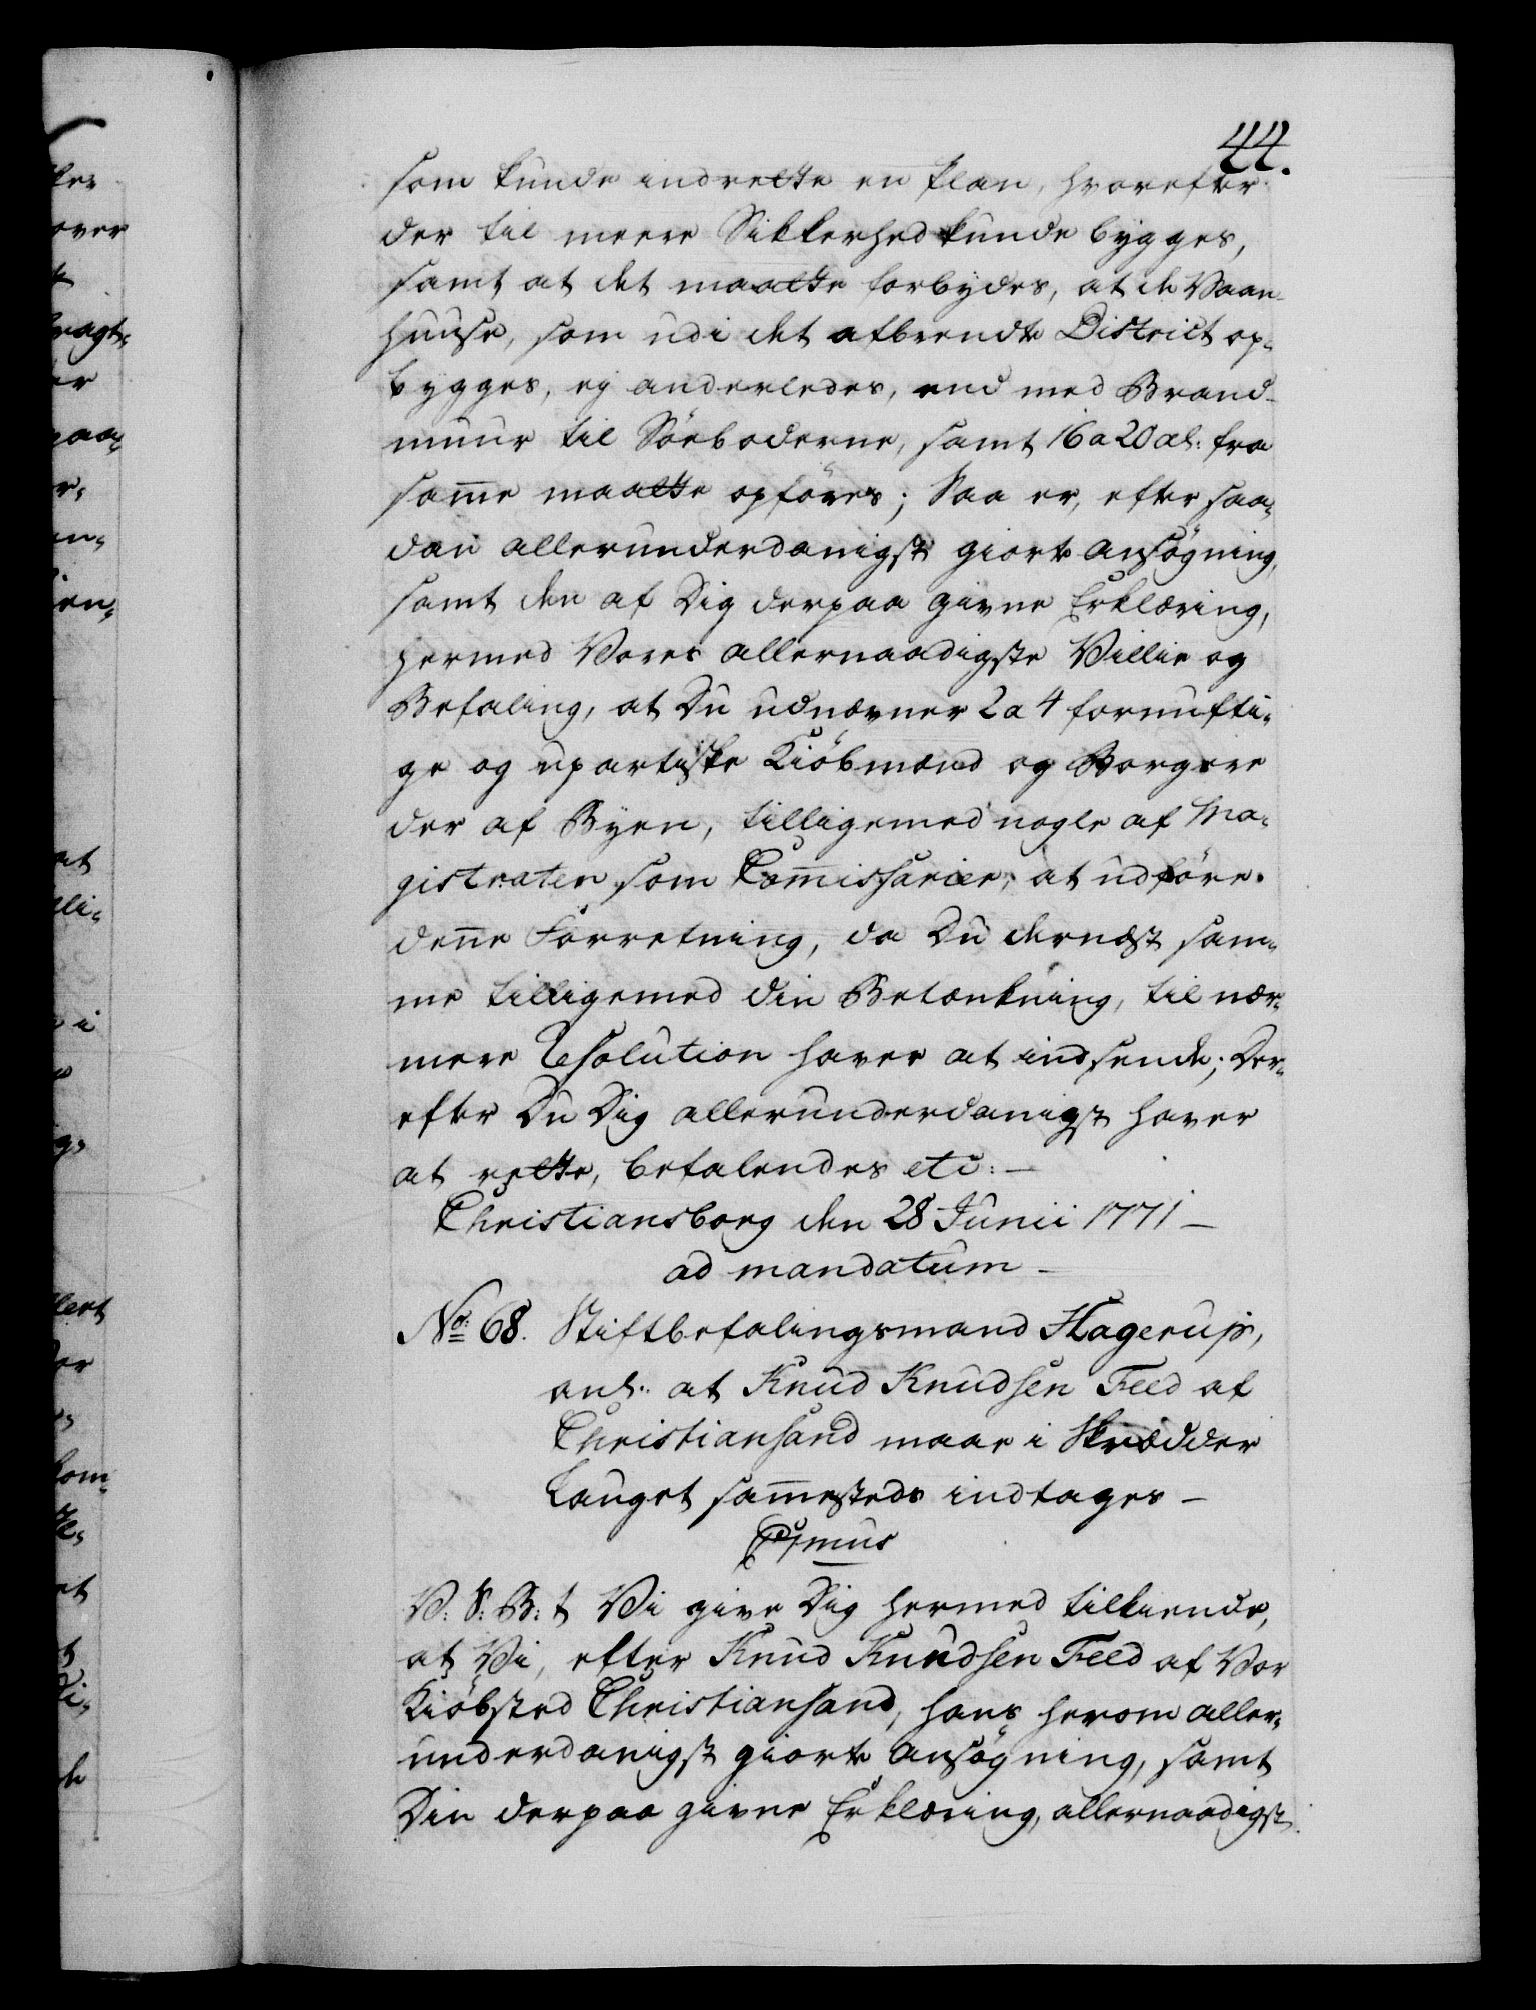 44.
som kunde indrette en Plan, hvorefter
der til meere Sikkerhed kunde bygges,
samt at det maatte forbydes, at de Vaan-
huuse, som udi det afbrendte District op-
bygges, ej anderledes, end med Brand-
muur til Söeboderne, samt 16 a 20 al: fra
samme maatte opföres; Saa er, efter saa-
dan allerunderdanigst giorte Ansögning,
samt den af Dig derpaa givne Erklæring,
hermed Vores allernaadigste Villie og
Befaling, at Du udnævner 2 a 4 fornufti-
ge og upartiske Kiöbmænd og Borgere
der af Byen, tilligemed nogle af Ma-
gistraten som Commissarier, at udföre
denne Forretning, da Du dernæst sam-
me tilligemed din Betænkning, til nær-
mere Resolution haver at indsende; Der-
efter Du Dig allerunderdanigst haver
at rette, befalendes etc: -
Christiansborg den 28 Junii 1771 -
ad mandatum -
No: 68. Stiftbefalingsmand Hagerup,
anl: at Knud Knudsen Feed af
Christiansand maae i Skrædder
Lauget sammesteds indtages -
V: S: B: t Vi give Dig hermed tilkiende,
at Vi, efter Knud Knudsen Feed af Vor
Kiöbsted Christiansand, hans herom aller-
underdanigst giorte Ansögning, samt
Din derpaa givne Erklæring, allernaadigst